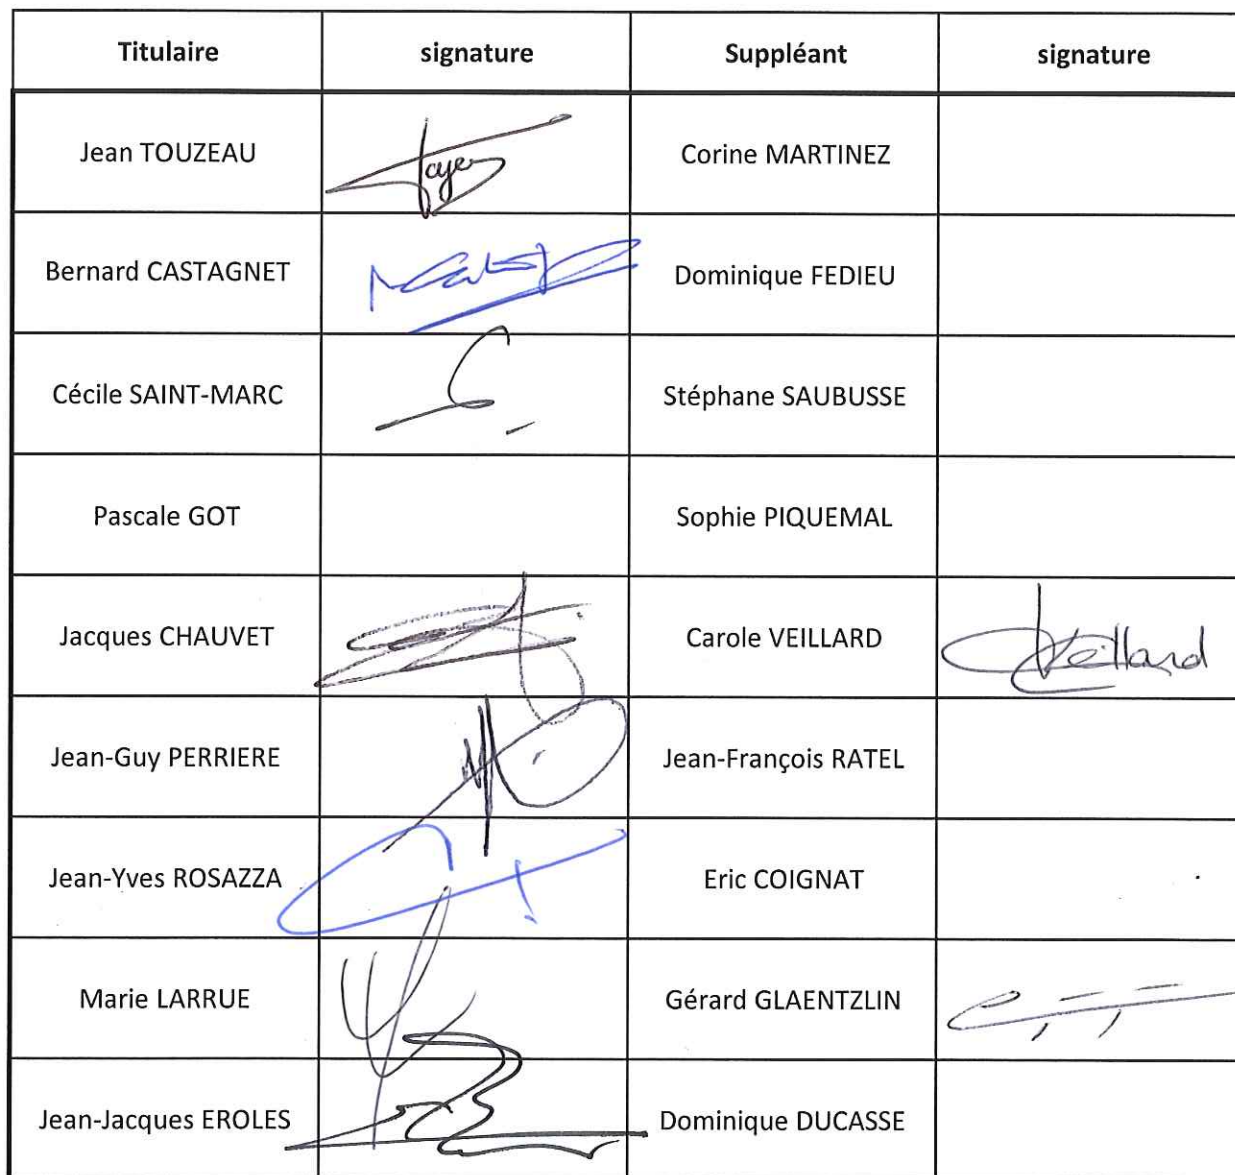 Titulaire signature Suppléant signature
Jean TOUZEAU Corine MARTINEZ
Bernard CASTAGNET Dominique FEDIEU
Cécile SAINT-MARC Stéphane SAUBUSSE
Pascale GOT Sophie PIQUEMAL
Jacques CHAUVET Carole VEILLARD Veillard
Jean-Guy PERRIERE Jean-François RATEL
Jean-Yves ROSAZZA Eric COIGNAT
Marie LARRUE Gérard GLAENTZLIN
Jean-Jacques EROLES Dominique DUCASSE